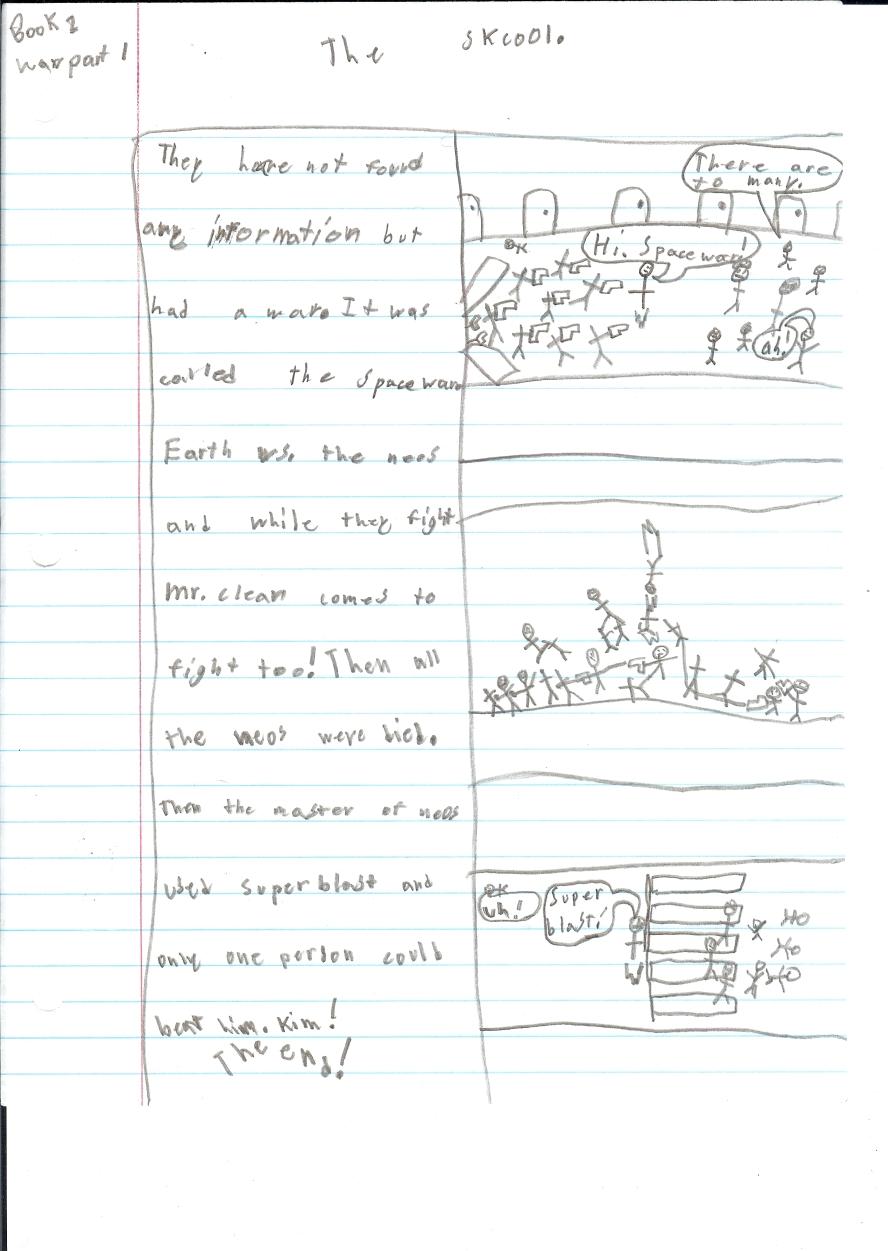 Book 2
war part 1
The skcool.
They have not found
any information but
had a ware. It was
called the spacewar
Earth vs. the neos
and while they fight
Mr. clean comes to
fight too! Then all
the neos were
Then the master of neos
used super blast and
only one person could
beat him. Kim!
The end!
There are
to many.
Hi. Spacewar!
ah!
uh!
Super
blast!